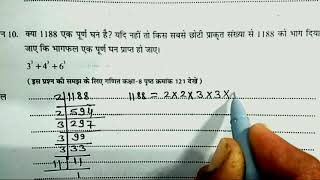 प्रश्न 10. क्या 1188 एक पूर्ण घन है? यदि नहीं तो किस सबसे छोटी प्राकृत संख्या से 1188 को भाग दिया
जाए कि भागफल एक पूर्ण घन प्राप्त हो जाए।
3³+4³+6³
( इस प्रश्न की समझ के लिए गणित कक्षा-8 पृष्ठ क्रमांक 121 देखें )
2 | 1188 1188 = 2×2×3×3×
2 | 594
3 | 297
3 | 99
3 | 33
11 | 11
1